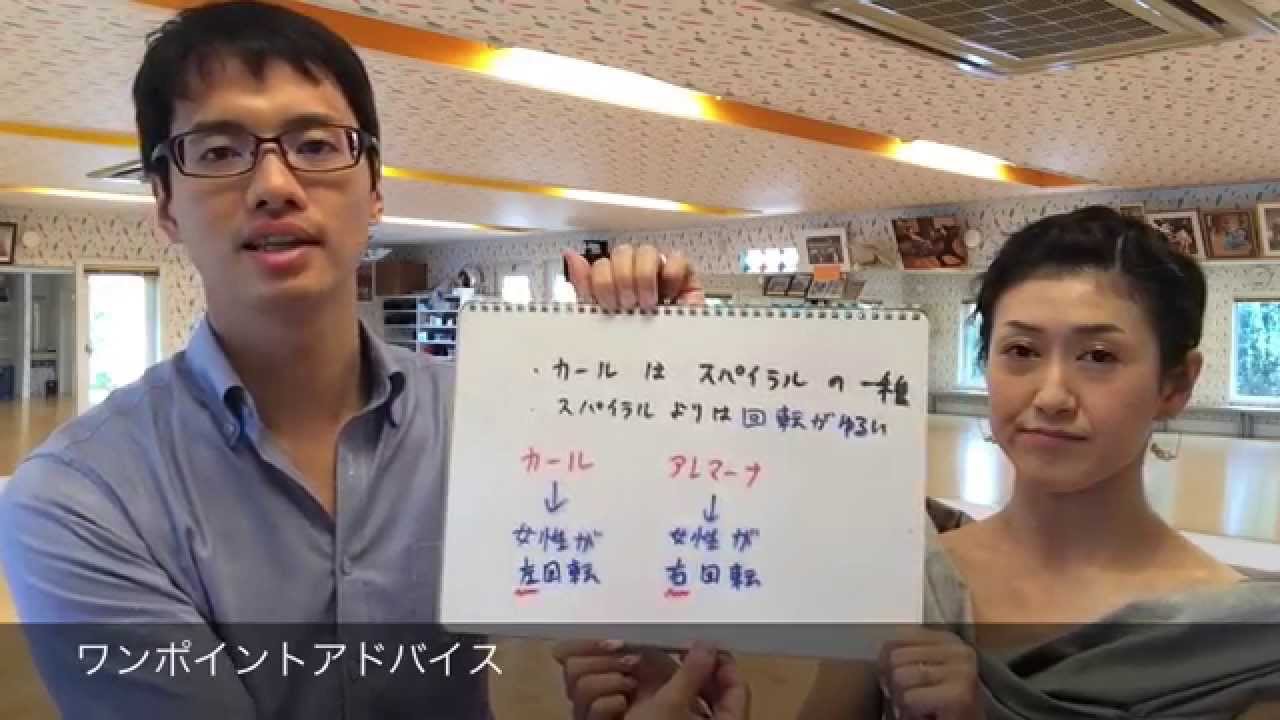 ・カールはスパイラルの一種
・スパイラルよりは回転がゆるい
カール アレマーナ
↓ ↓
女性が 女性が
左回転 右回転
ワンポイントアドバイス